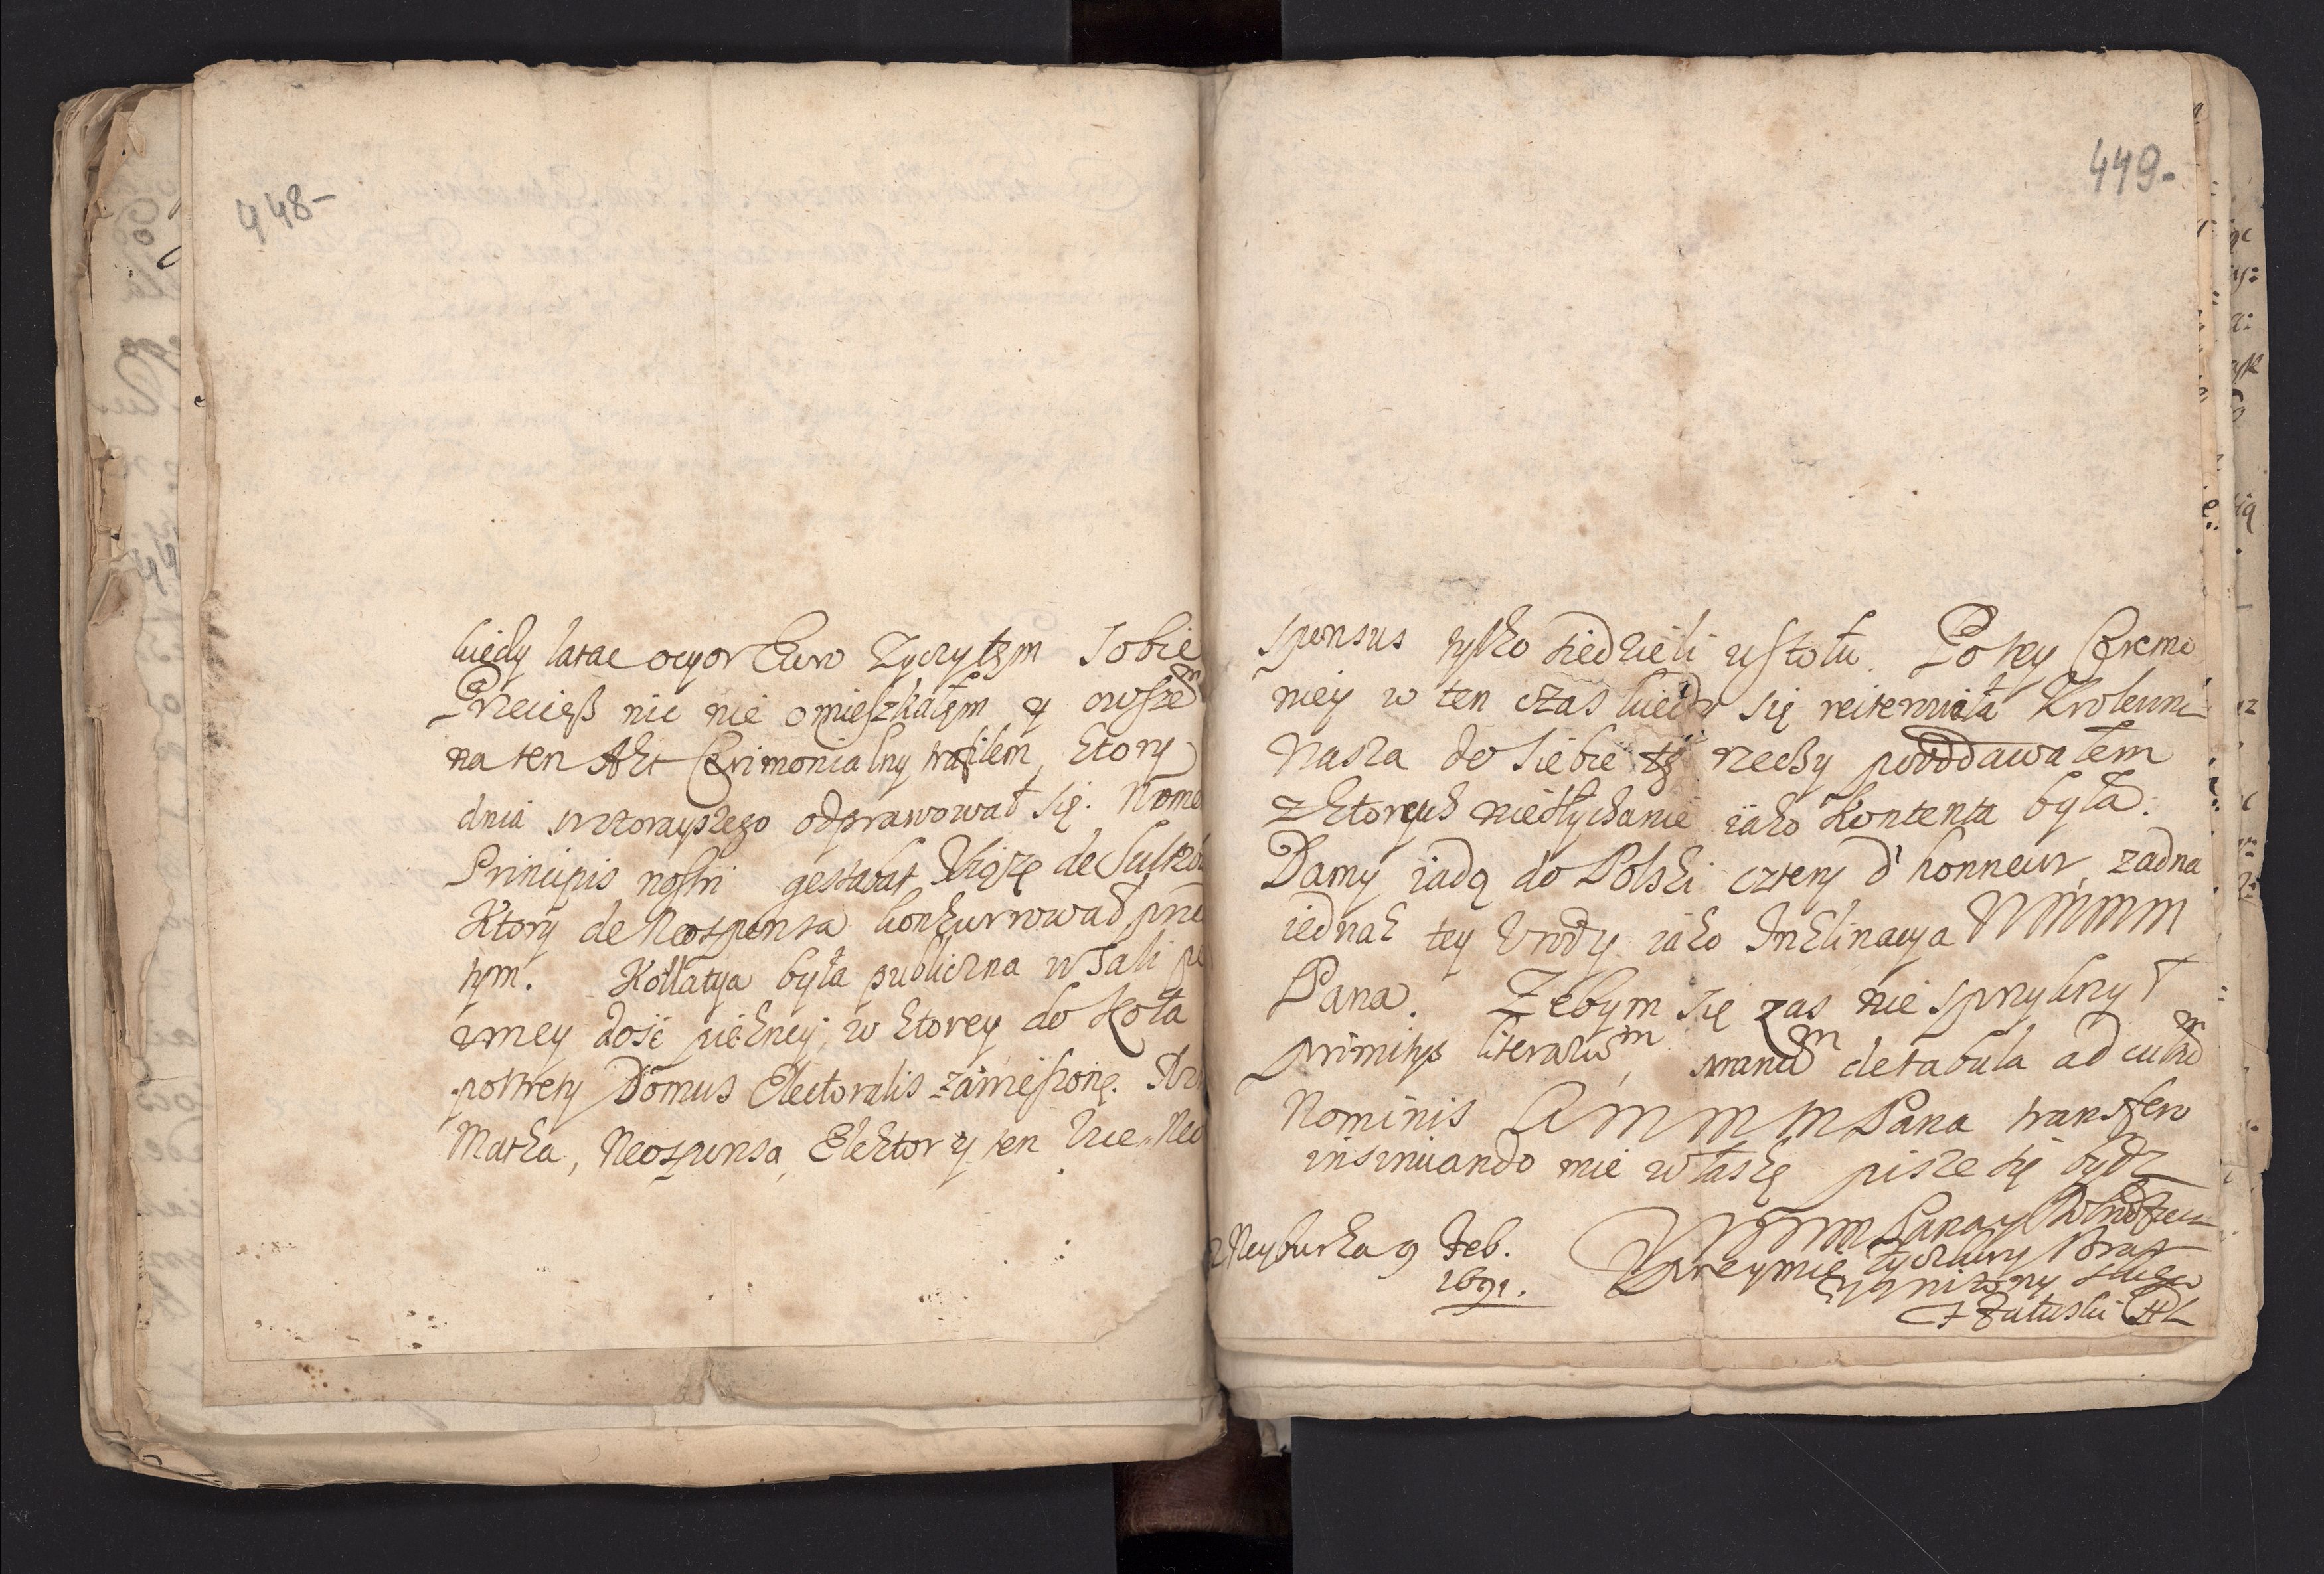 448-
kiedy latac ocyor Euro Zyczyłem Sobie
Przecięß nic nie omieszkałem y owszem
na ten Akt Cerimonialny trafilem, ktory
dnia wczorayszego odprawował się. Nome
Principis nostri gestabat Xiąże de Sultzb
Ktory de Neosponsa konkurrował
tym. Kollatya była publiczna w Sali
zmey dość piękney, w ktorey do Koła
portrety Domus Electoralis zawieszone.
Matka, Neosponsa, Elektor y ten Vice Neo
449-
sponsus tylko siedzieli u stołu. Po tey Ceremo
niey w ten czas kiedy się reiterowała Krolewni
Nasza do Siebie rzeczy poddawałem
z ktorych niesłychanie iako Kontenta była.
Damy iadą do Polski cztery d'honneur, zadna
iednak tey Urody iako Inklinacya WMMM
Pana. Zebym się zas nie sprzykrzył
primitys literarum, manum de tabula ad cultum
Nominis WMMM Pana transfero
insinuando mie w łaskę pisze się bydz
WMMM Pana y Dobrodzieia
z Neyburka 9 Feb. Uprzeymie życzliwy Brat
1691. y uniżony sługa
Załuski